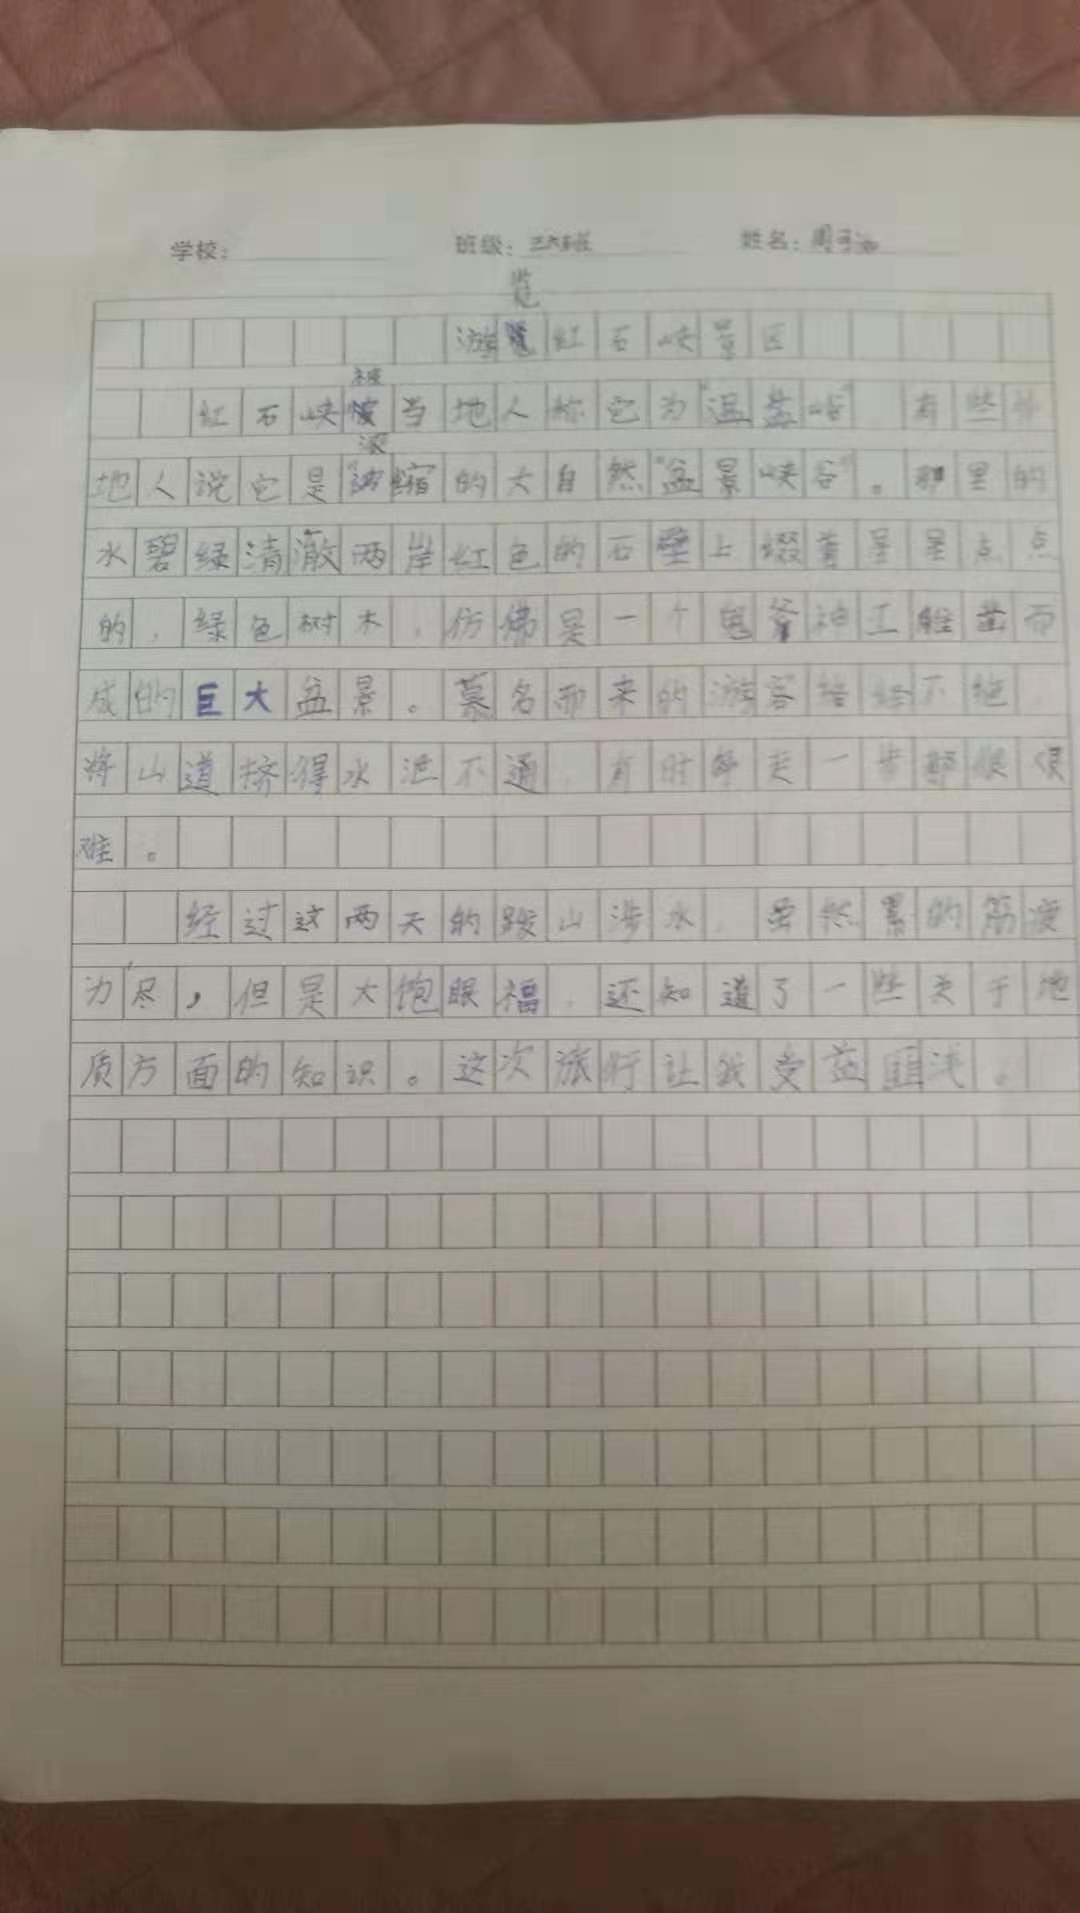 学校： 班级：三六班 姓名：周子
览
游览红石峡景区
被
红石峡被当地人称它为“温盘峪”，有些外
浓
地人说它是“浓缩的大自然“盆景峡谷”。那里的
水碧绿清澈两岸红色的石壁上缀着星星点点
的，绿色树木，仿佛是一个鬼斧神工雕凿而
成的巨大盆景。慕名而来的游客络绎不绝，
将山道挤得水泄不通，有时每走一步都很艰
难。
经过这两天的跋山涉水，虽然累的筋疲
力尽，但是大饱眼福，还知道了一些关于地
质方面的知识。这次旅行让我受益匪浅。